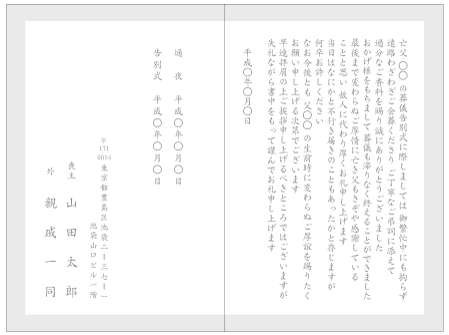 亡父 〇〇の葬儀告別式に際しましては 御繁忙中にも拘らず
遠路わざわざご会葬くださり ご丁寧なご弔詞に添えて
過分なご香料を賜り誠にありがとうございました
おかげ様をもちまして 葬儀も滞りなく終えることができました
最後まで変わらぬご厚情に亡き父もさぞや感謝している
ことと思い 故人に代わり厚くお礼申し上げます
当日はなにかと不行き届きのこともあったかと存じますが
何卒お許しください
なお今後とも 父〇〇の生前時に変わらぬご厚誼を賜りたく
お願い申し上げる次第でございます
早速拝眉の上ご挨拶申し上げるべきところではございますが
失礼ながら書中をもって謹んでお礼申し上げます
平成〇年〇月〇日
通夜 平成〇年〇月〇日
告別式 平成〇年〇月〇日
〒171-0014 東京都豊島区池袋二ー三七ー一
池袋山口ビル一階
喪主 山田太郎
外 親戚一同